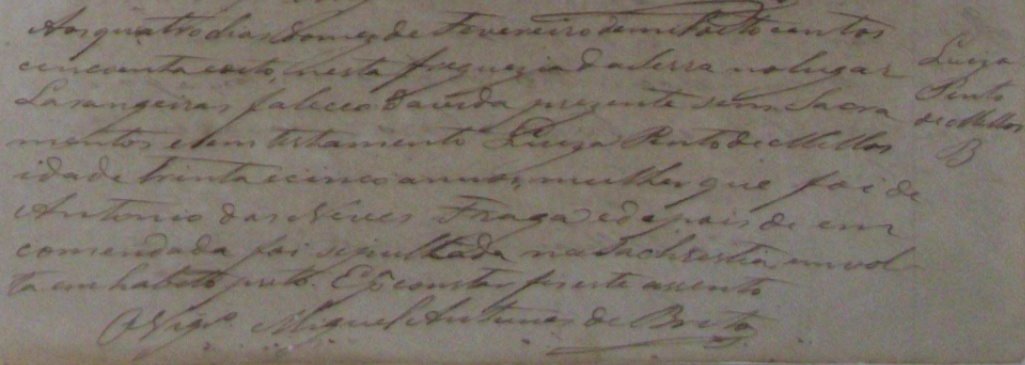 Aos quatro dias do mez de Fevereiro de mil oito centos
cincoenta e oito, nesta freguezia da Serra no lugar
Larangeiras faleceo da vida prezente sem Sacra
mentos e sem testamento Luiza Pinto de Mello
idade trinta e cinco annos, mulher que foi de
Antonio das Neves Fraga e depois de em
comendada foi sepultada na Sachrestia, envol-
ta em habito preto. E p.a constar fiz este assento
O Vigr.o Miguel Antunes de Brito
Luiza
Pinto
de Mello
B